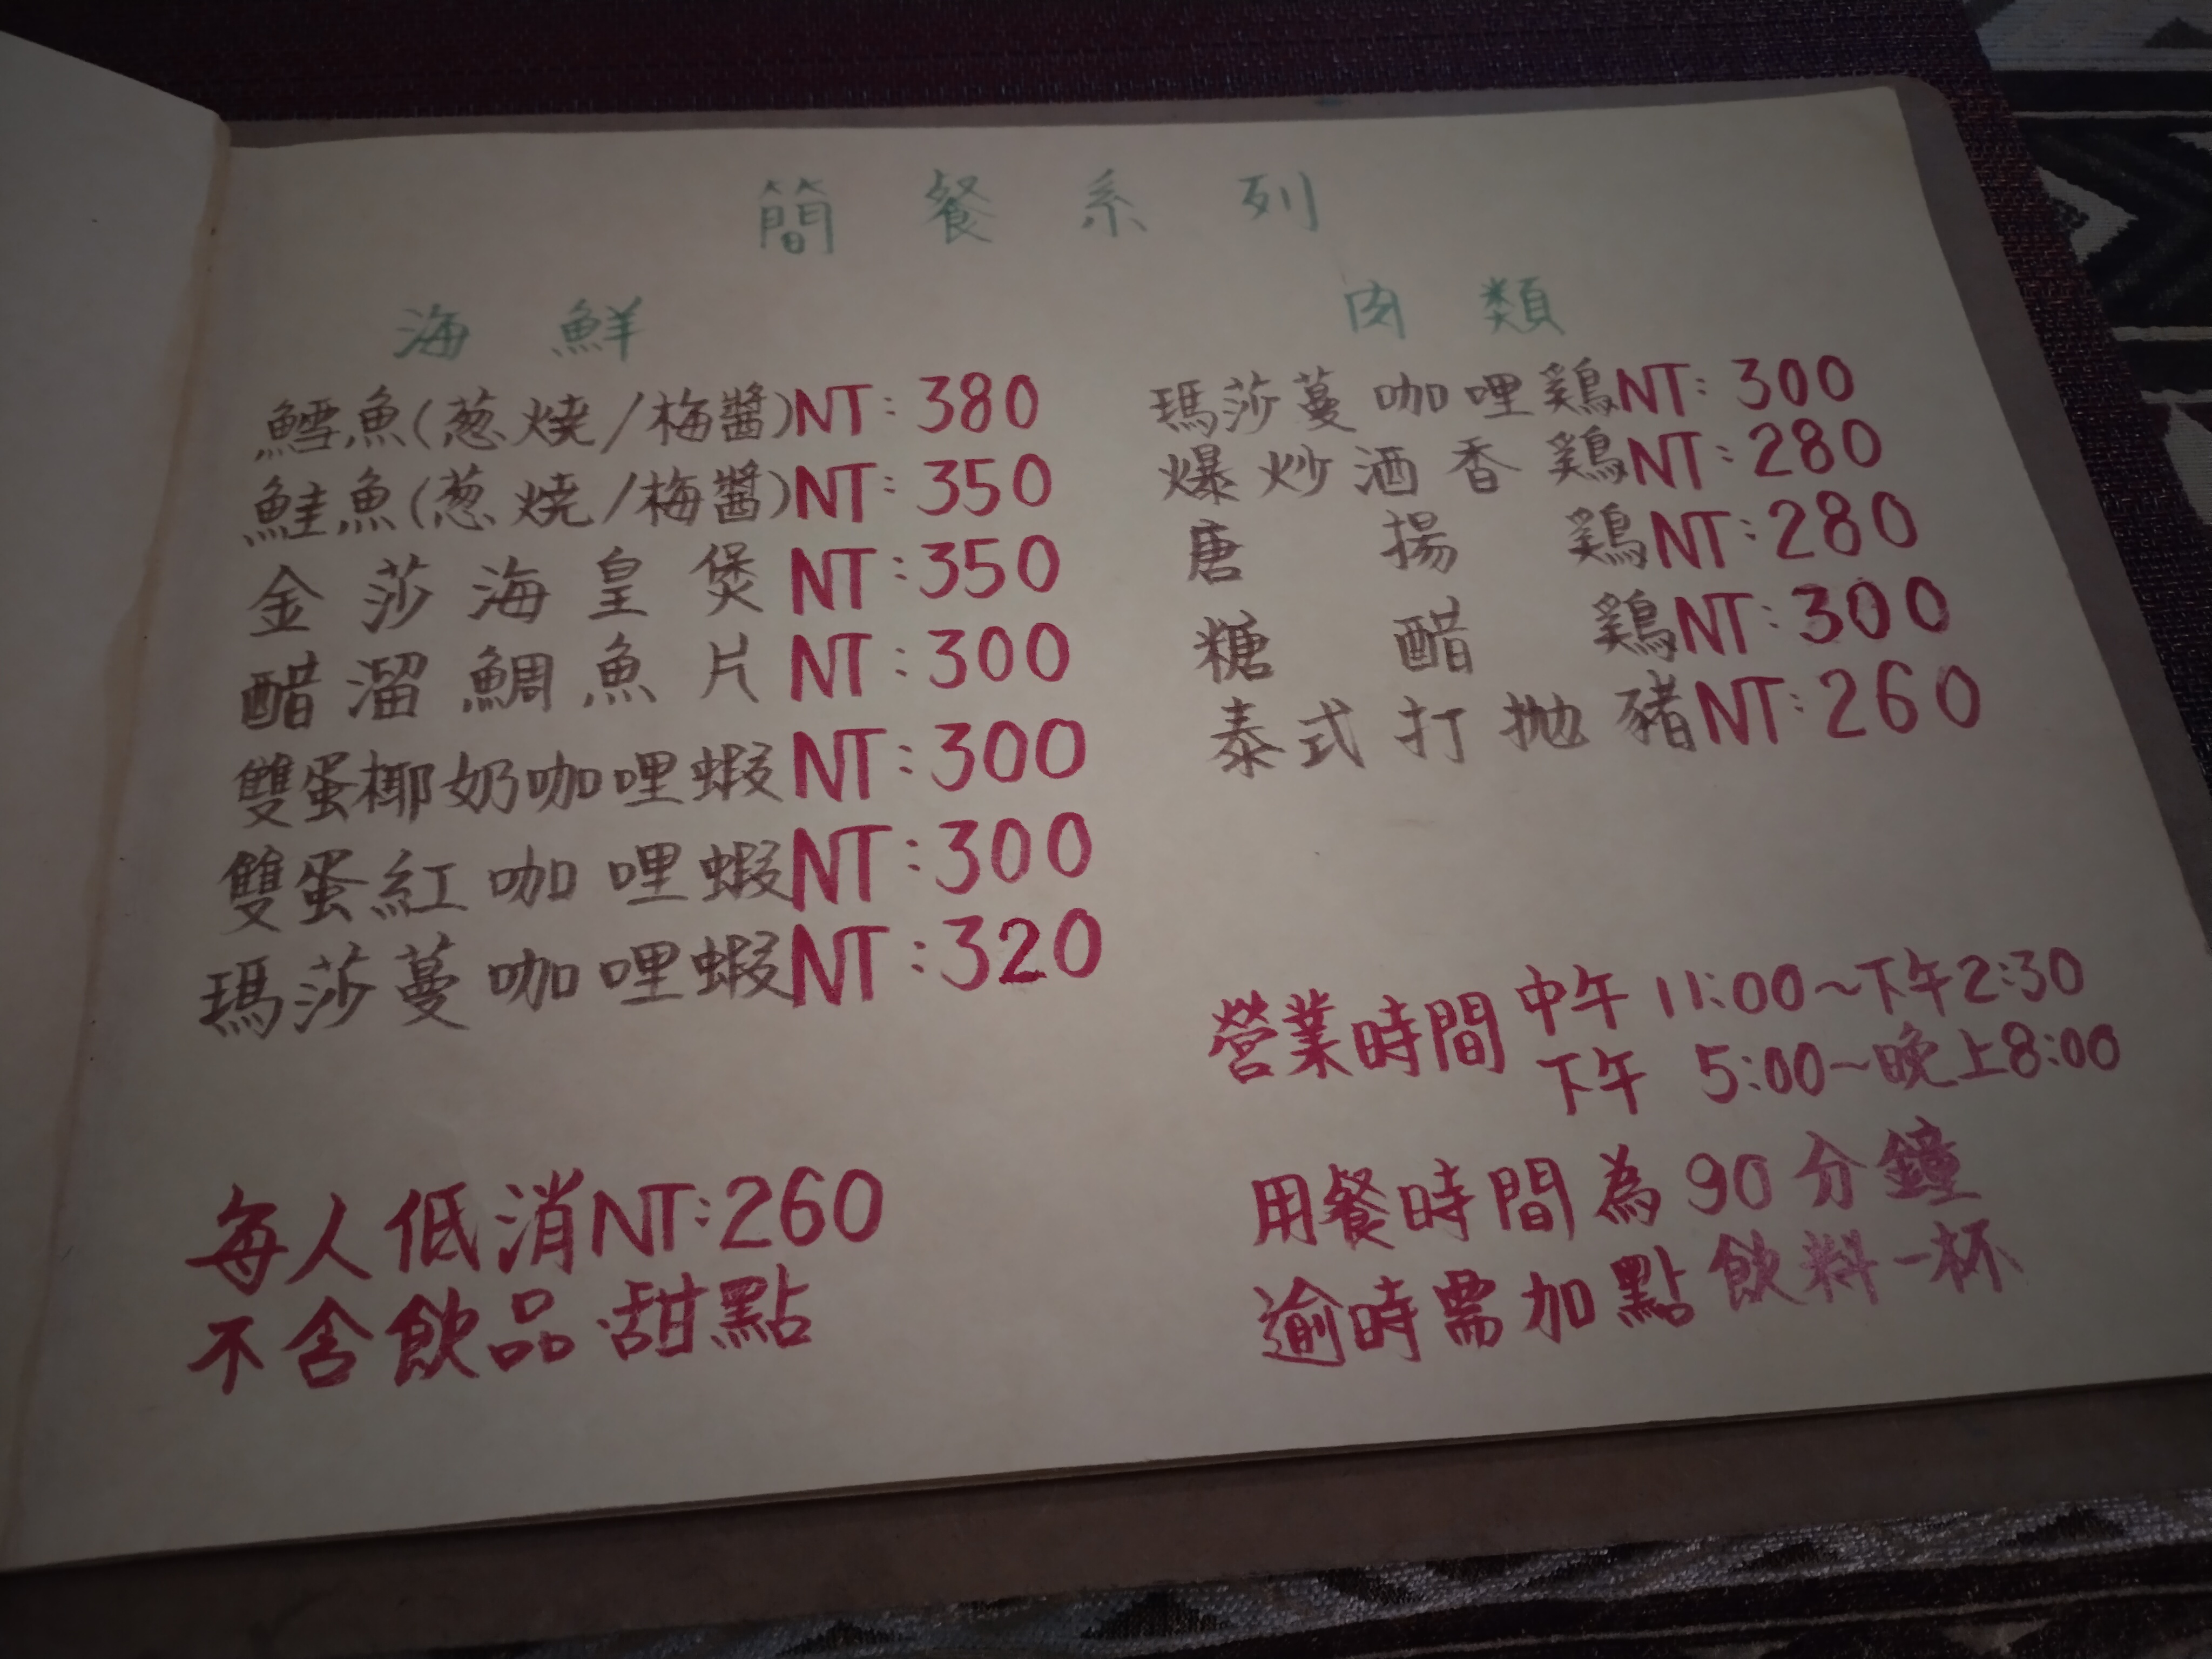 簡餐系列
海鮮
鱈魚(葱燒/梅醬)NT:380
鮭魚(葱燒/梅醬)NT:350
金莎海皇煲NT:350
醋溜鯛魚片NT:300
雙蛋椰奶咖哩蝦NT:300
雙蛋紅咖哩蝦NT:300
瑪莎蔓咖哩蝦NT:320
每人低消NT:260
不含飲品.甜點
肉類
瑪莎蔓咖哩鶏NT:300
爆炒酒香鶏NT:280
唐揚鶏NT:280
糖醋鶏NT:300
泰式打拋豬NT:260
營業時間 中午 11:00~下午2:30
下午 5:00~晚上8:00
用餐時間為90分鐘
逾時需加點飲料一杯